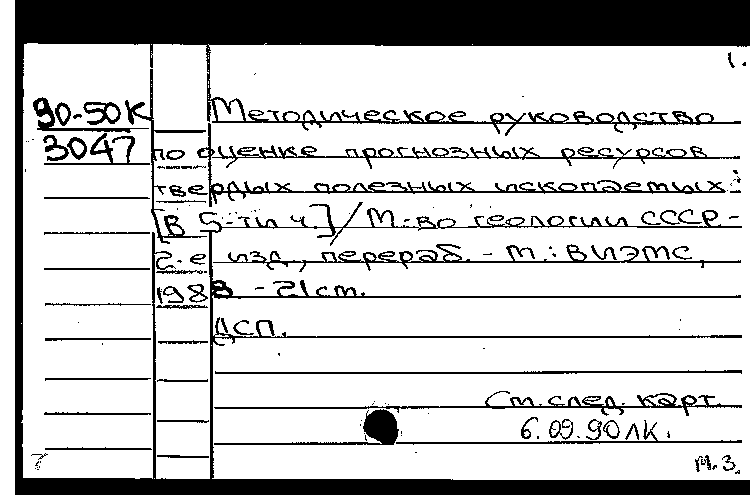 1.
90-50К
3047
Методическое руководство
по оценке прогнозных ресурсов
твердых полезных ископаемых:
[В 5-ти ч.] / М-во геологии СССР. -
2-е изд., перераб. - М.: ВИЭМС,
1988. - 21 см.
ДСП.
См. след. карт.
6.09.90 ЛК.
М.З.